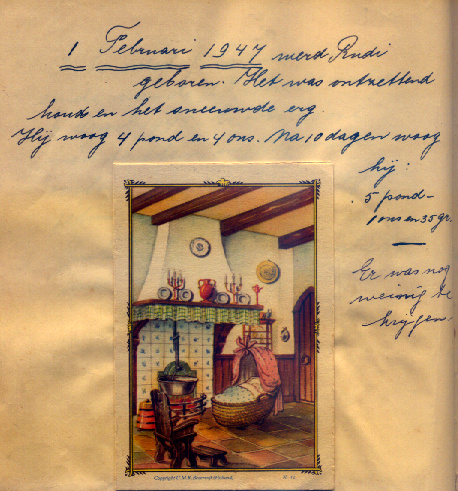 1 Februari 1947 werd Rudi
geboren. Het was ontzettend
koud en het sneeuwde erg.
Hij woog 4 pond en 4 ons. Na 10 dagen woog
hij:
5 pond-
1 ons en 35 gr.
Er was nog
weinig te
krijgen.
Copyright C.M.B. Holland.